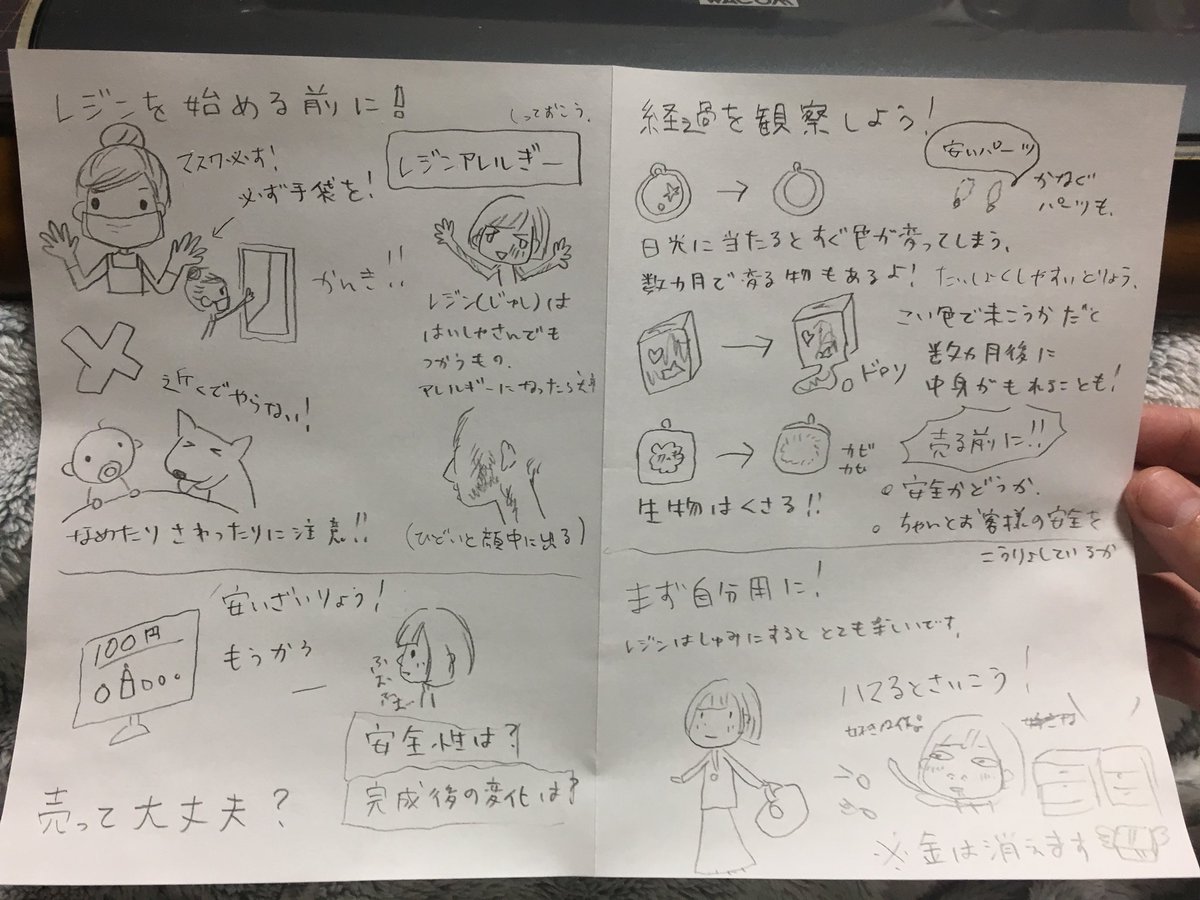 WACOM
レジンを始める前に!!
しっておこう。
マスク必ず!
必ず手袋を!
レジンアレルギー
かんき!!
レジン(じゅし)は
はいしゃさんでも
つかうもの。
アレルギーになったら大変
近くでやらない!
なめたりさわったりに注意!!
(ひどいと顔中に出る)
安いざいりょう!
100円
もうかるー
安全性は?
完成後の変化は?
売って大丈夫?
経過を観察しよう!
安いパーツ
かなぐ
パーツも、
日光に当たるとすぐ色が変ってしまう。
数カ月で変る物もあるよ!
たいしょくしやすいどりょう。
こい色で未こうかだと
数カ月後に
中身がもれることも!
ドロッ
カビ
カビ
生物はくさる!!
売る前に!!
安全かどうか。
ちゃんとお客様の安全を
こうりょしているか
まず自分用に!
レジンはしゅみにするととても楽しいです。
ハマるとさいこう!
※金は消えます